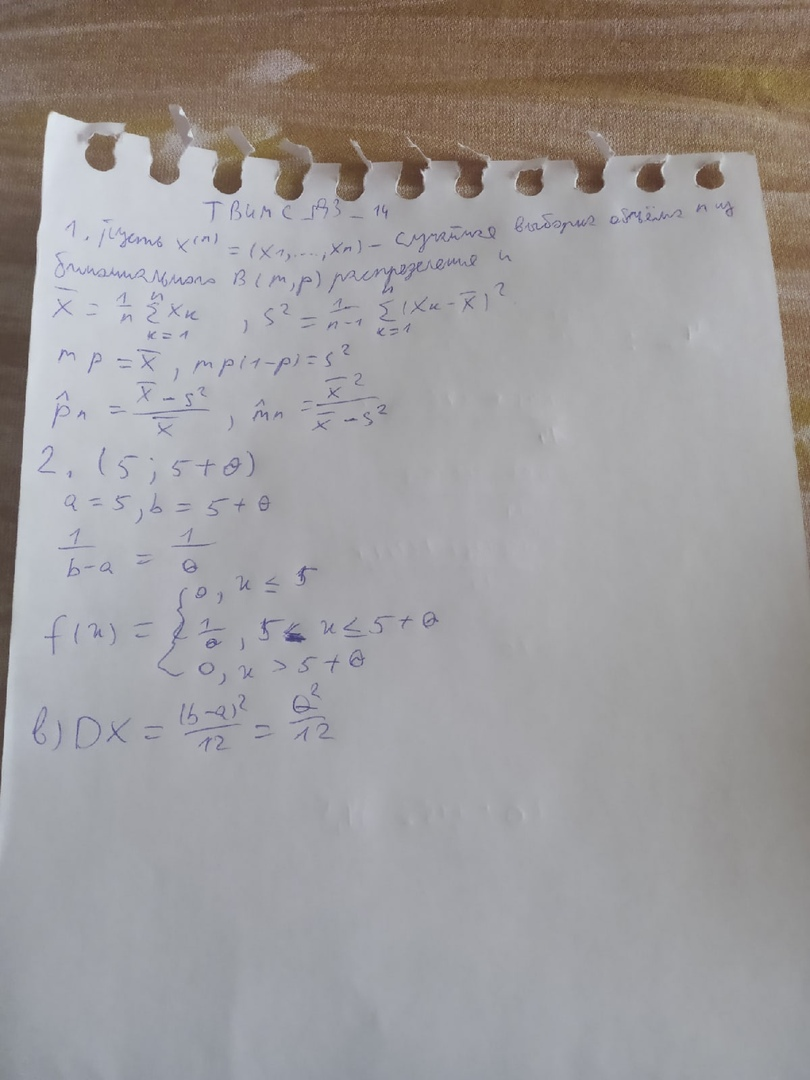 ТВиМС_ДЗ_14
1. Пусть X⁽ⁿ⁾ = (X1, ..., Xn) - случайная выборка объёма n из
биномиального B(m, p) распределения и
X̅ = 1/n ∑_{k=1}^{n} Xk , s² = 1/(n-1) ∑_{k=1}^{n} (Xk - X̅)²
mp = X̅, mp(1-p) = s²
p̂n = (X̅ - s²)/X̅ , m̂n = X̅²/(X̅ - s²)
2. (5; 5+θ)
a = 5, b = 5+θ
1/(b-a) = 1/θ
f(x) = { 0, x ≤ 5
1/θ, 5 < x ≤ 5+θ
0, x > 5+θ
в) DX = (b-a)²/12 = θ²/12